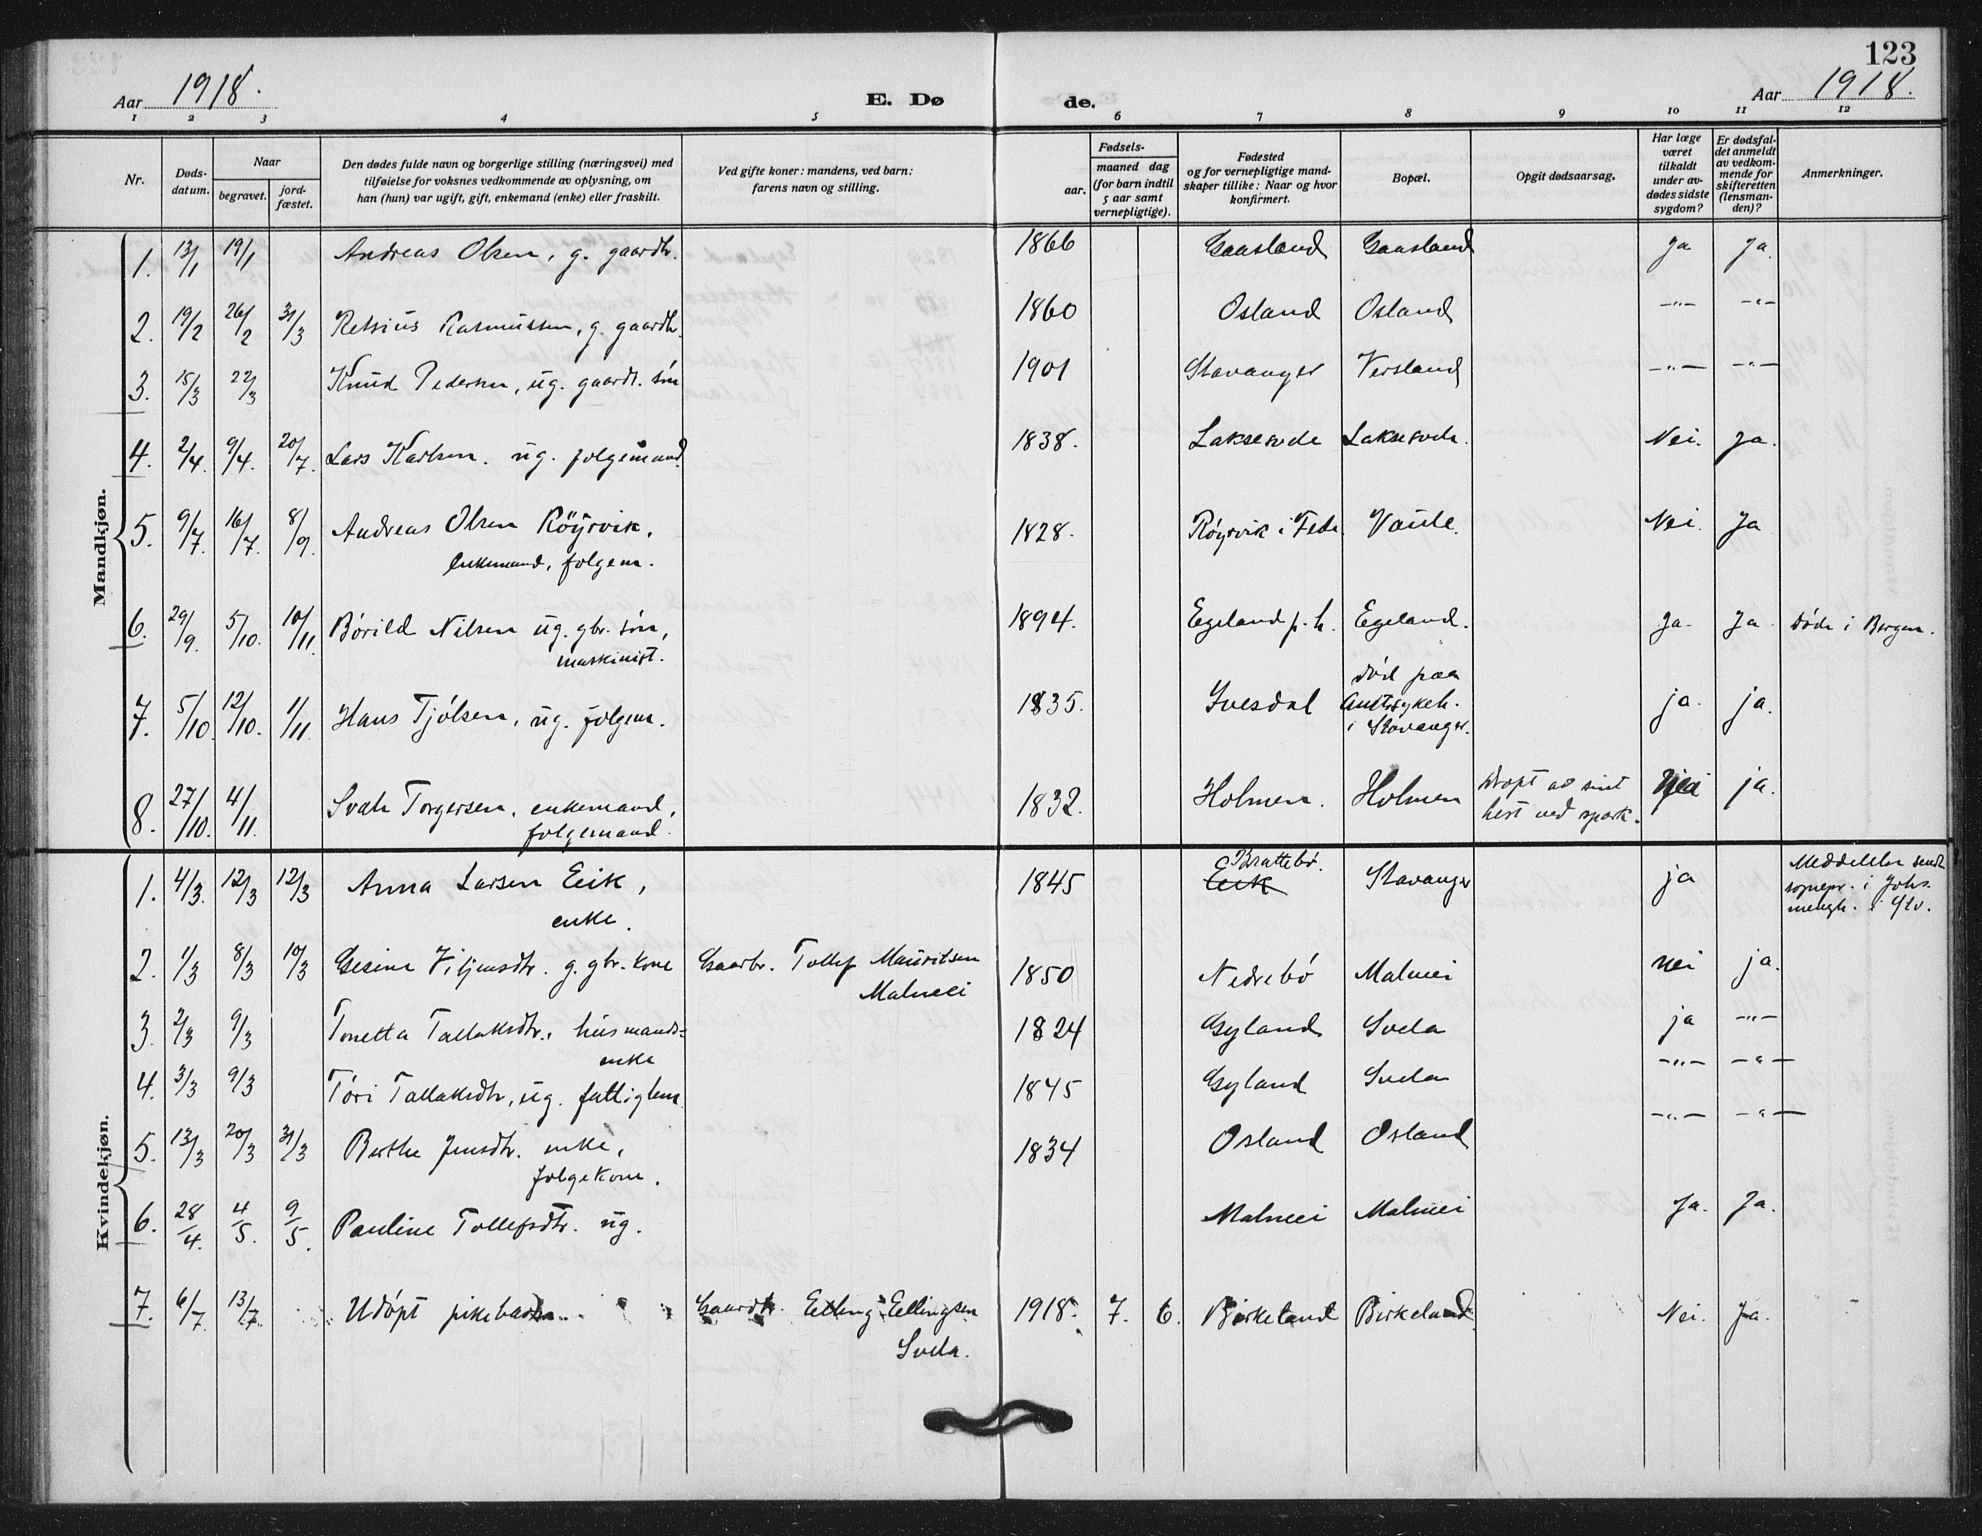 123
Aar 1918. E. Dø de. Aar 1918.
1 2 3 4 5 6 7 8 9 10 11 12
Nr.
Døds-
datum.
Naar
begravet.
jord-
fæstet.
Den dødes fulde navn og borgerlige stilling (næringsvei) med
tilføielse for voksnes vedkommende av oplysning, om
han (hun) var ugift, gift, enkemand (enke) eller fraskilt.
Ved gifte koner: mandens, ved barn:
farens navn og stilling.
Fødsels-
aar.
maaned dag
(for barn indtil
5 aar samt
vernepligtige).
Fødested
og for vernepligtige mand-
skaper tillike: Naar og hvor
konfirmert.
Bopæl.
Opgit dødsaarsag.
Har læge
været
tilkaldt
under av-
dødes sidste
sygdom?
Er dødsfal-
det anmeldt
av vedkom-
mende for
skifteretten
(lensman-
den)?
Anmerkninger.
Mandkjøn.
1. 13/1 19/1 Andreas Olsen, g. gaardbr. 1866 Gaasland Gaasland Ja Ja.
2. 19/2 26/2 31/3 Rasmussen, g. gaardbr. 1860 Osland Osland -"- -"-
3. 15/3 22/3 Knud Pedersen, ug. gaardb. søn 1901 Stavanger Versland -"- -"-
4. 2/4. 9/4. 20/7. Lars Karlsen. ug. folgemand. 1838. Laksesvele Laksesvele. Nei. Ja.
5. 9/7. 16/7. 8/9. Andreas Olsen Röyrvik,
enkemand, folgem. 1828. Röyrvik i Feda Vaule. Nei. Ja
6. 29/9. 5/10. 10/11. Børild Nilsen ug. gbr. søn,
maskinist. 1894. Egeland p. h. Egeland. Ja. Ja. Døde i Bergen.
7. 5/10. 12/10. 1/11. Hans Tjølsen, ug. folgem. 1835. Ivesdal død paa
Amtssykeh.
i Stavanger. ja. ja.
8. 27/10. 4/11. Svale Torgersen, enkemand,
folgemand. 1832. Holmen. Holmen Dræpt av sint
hest ved spark. Nei ja.
Kvindekjøn.
1. 4/3. 12/3 12/3 Anna Larsen Eeik,
enke. 1845 Brattebø.
Eeik Stavanger ja Meddelelse sendt
sognepr. i Johs.
mengh. i
2. 1/3 8/3 10/3 Gesine Viljemsdtr. g. gbr. kone Gaardbr. Tollef Mauritsen
Malmeei 1850 Nedrebø Malmeei nei ja.
3. 2/3 9/3 Tonetta Tallaksdtr., husmands-
enke 1824 Gyland Svela ja -"-
4. 3/3 9/3 Tori Tallaksdtr, ug. fattiglem 1845 Gyland Svela -"- -"-
5. 13/3 20/3 31/3 Berthe Jensdtr. enke,
folgekone. 1834 Osland Osland -"- -"-
6. 28/4. 4/5. 9/5. Pauline Tollefsdtr. ug. Malmeei Malmeei Ja. Ja.
7. 6/7. 13/7. Udøpt pikebarn. Gaardbr. Eelling Eellingsen
Svela. 1918. 7. 6. Birkeland Birkeland. Nei. Ja.